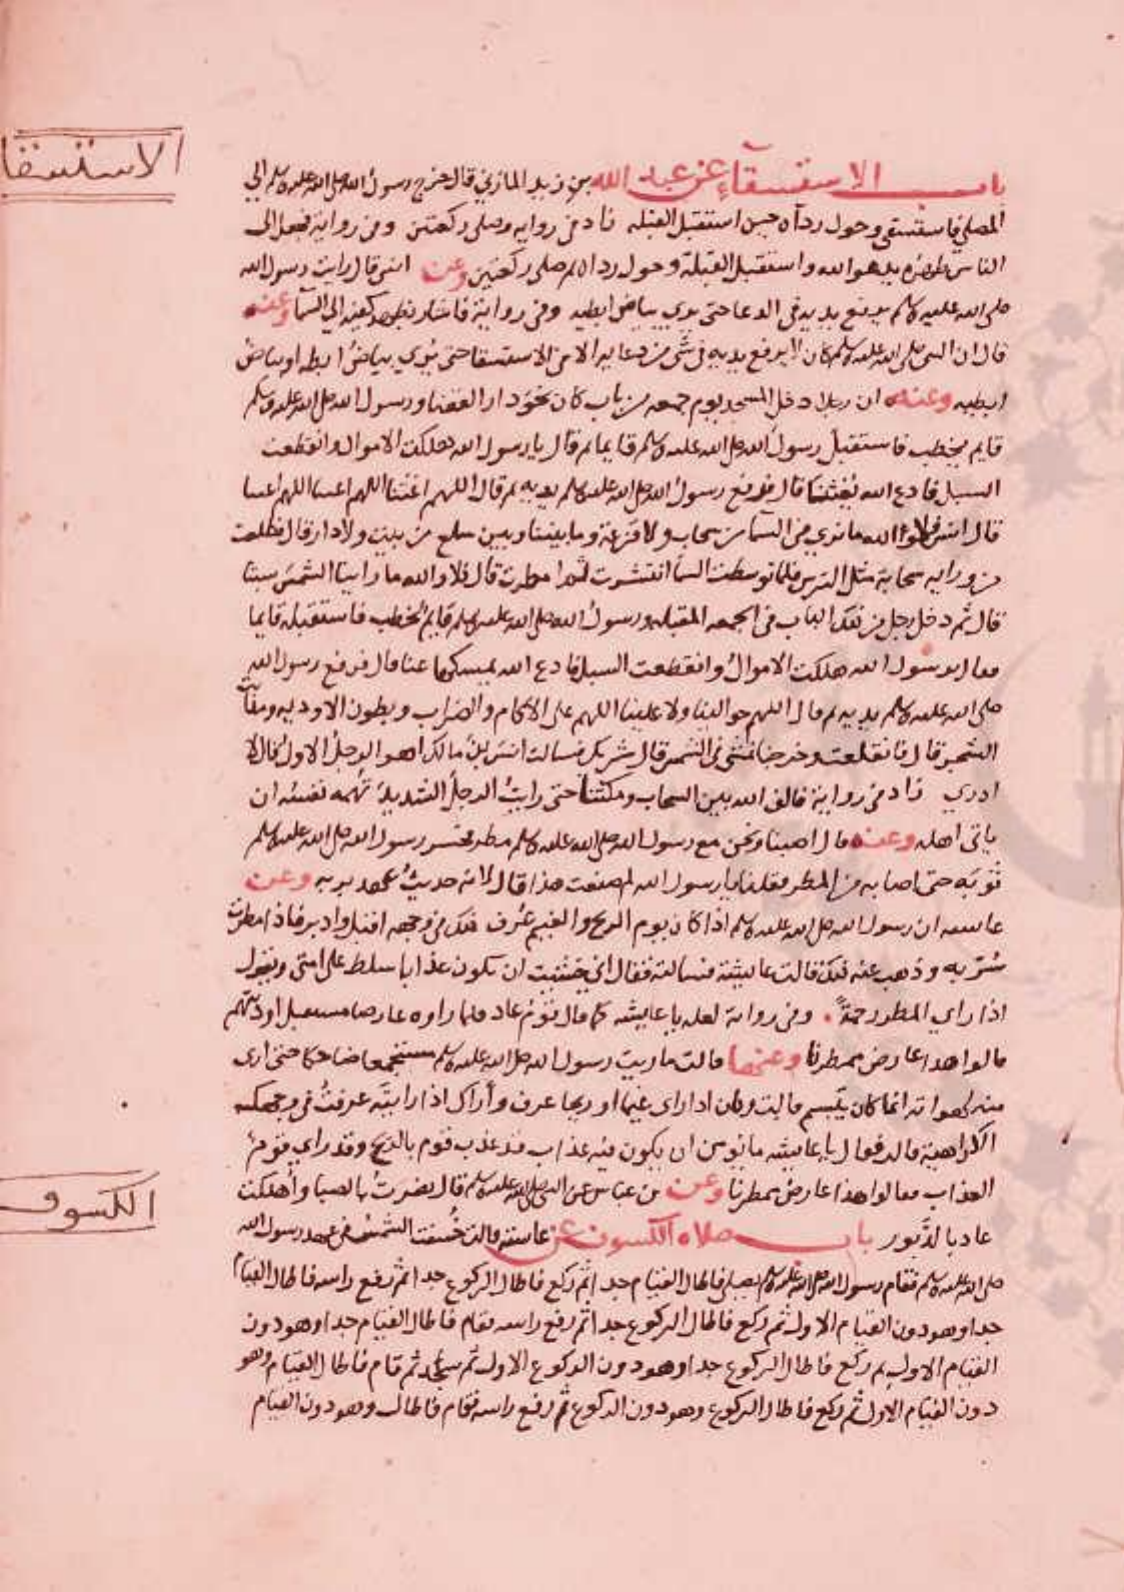 الاستسقا
باب الاستسقاء عن عبد الله بن زيد المازني قال خرج رسول الله صلى الله عليه وسلم الى
المصلى فاستسقى وحول رداه حين استقبل القبلة زاد في رواية وصلى ركعتين وفي رواية فجعل الى
الناس ظهره يدعو الله واستقبل القبلة وحول رداه ثم صلى ركعتين وعن انس قال رايت رسول الله
صلى الله عليه وسلم يرفع يديه في الدعا حتى يرى بياض ابطيه وفي رواية فاشار بظهر كفيه الى السما وعنه
قال ان النبي صلى الله عليه وسلم كان لا يرفع يديه في شي من دعايه الا في الاستسقا حتى يرى بياض ابطه او بياض
ابطيه وعنه ان رجلا دخل المسجد يوم جمعه من باب كان نحو دار القضا ورسول الله صلى الله عليه وسلم
قايم يخطب فاستقبل رسول الله صلى الله عليه وسلم قايما ثم قال يا رسول الله هلكت الاموال وانقطعت
السبل فادع الله يغثنا قال فرفع رسول الله صلى الله عليه وسلم يديه ثم قال اللهم اغثنا اللهم اغثنا اللهم اغثنا
قال انس فلا والله ما نرى في السما من سحاب ولا قزعة وما بيننا وبين سلع من بيت ولا دار قال فطلعت
من ورايه سحابة مثل الترس فلما توسطت السما انتشرت ثم امطرت قال فلا والله ما راينا الشمس سبتا
قال ثم دخل رجل من ذلك الباب في الجمعه المقبله ورسول الله صلى الله عليه وسلم قايم يخطب فاستقبله قايما
فقال يرسول الله هلكت الاموال وانقطعت السبل فادع الله يمسكها عنا قال فرفع رسول الله
صلى الله عليه وسلم يديه ثم قال اللهم حوالينا ولا علينا اللهم على الاكام والضراب وبطون الاوديه ومنابت
الشجر قال فانقلعت وخرجنا نمشي في الشمس قال شريك فسالت انس بن مالك اهو الرجل الاول قال لا
ادري زاد في رواية فالف الله بين السحاب ومكثنا حتى رايت الرجل الشديد تهمه نفسه ان
ياتي اهله وعنه قال اصبنا ونحن مع رسول الله صلى الله عليه وسلم مطر فحسر رسول الله صلى الله عليه وسلم
ثوبه حتى اصابه من المطر فقلنا يا رسول الله لم صنعت هذا قال لانه حديث عهد بربه وعن
عايشه ان رسول الله صلى الله عليه وسلم اذا كان يوم الريح والغيم عرف ذلك في وجهه اقبل وادبر فاذا مطرت
سر به وذهب عنه ذلك قالت عايشة فسالته فقال اني خشيت ان يكون عذابا سلط على امتي ويقول
اذا راى المطر رحمة. وفي رواية لعله يا عايشه كما قال قوم عاد فلما راوه عارضا مستقبل اوديتهم
قالوا هذا عارض ممطرنا وعنها قالت ما رايت رسول الله صلى الله عليه وسلم مستجمعا ضاحكا حتى ارى
منه لهواته انما كان يتبسم قالت وكان اذا راى غيما او ريحا عرف واراك اذا رايته عرفت في وجهك
الكراهية قالت فقال يا عايشه ما يؤمن ان يكون فيه عذاب قد عذب قوم بالريح وقد راى قوم
العذاب فقالوا هذا عارض ممطرنا وعن بن عباس عن النبي صلى الله عليه وسلم قال نصرت بالصبا واهلكت
الكسوف
عاد بالدبور باب صلاه الكسوف عن عايشه قالت خسفت الشمس في عهد رسول الله
صلى الله عليه وسلم فقام رسول الله صلى الله عليه وسلم يصلي فاطال القيام جدا ثم ركع فاطال الركوع جدا ثم رفع راسه فاطال القيام
جدا وهو دون القيام الاول ثم ركع فاطال الركوع جدا ثم رفع راسه فقام فاطال القيام جدا وهو دون
القيام الاول ثم ركع فاطال الركوع جدا وهو دون الركوع الاول ثم سجد ثم قام فاطال القيام وهو
دون القيام الاول ثم ركع فاطال الركوع وهو دون الركوع ثم رفع راسه فقام فاطال وهو دون القيام